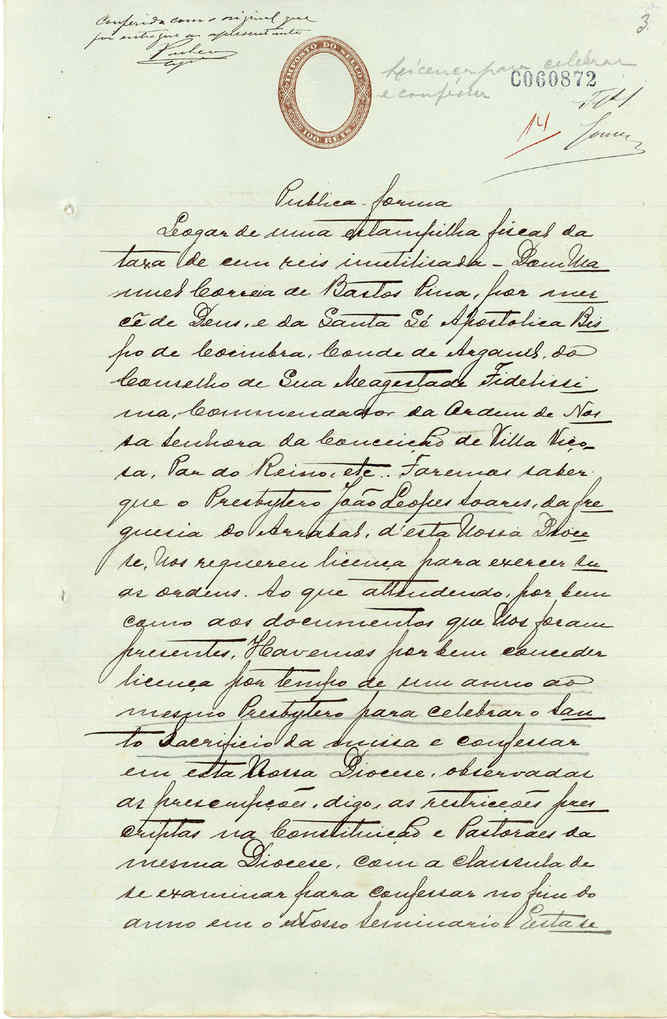 Conferida com o original que
foi entregue ao apresentante
3
IMPOSTO DO SELLO
100 REIS
Licença para celebrar
e confessar
C060872
14
Publica-forma
Logar de uma estampilha fiscal da
taxa de cem reis inutilisada – Dom Ma
nuel Correia de Bastos Pina, por mer
cê de Deus, e da Santa Sé Apostolica Bis
po de Coimbra, Conde de Arganil, do
Conselho de Sua Magestade Fidelissi
ma, Commendador da Ordem de Nos
sa Senhora da Conceição de Villa Viço-
sa, Par do Reino, etc.. Faremos saber
que o Presbytero João Lopes Soares, da fre
guesia do Arrabal, d'esta Nossa Dioce
se, Nos requereu licença para exercer su
as ordens. Ao que attendendo, por bem
como aos documentos que Nos foram
presentes, Havemos por bem conceder
licença por tempo de um anno ao
mesmo Presbytero para celebrar o San
to Sacrificio da missa e confessar
em esta Nossa Diocese, observadas
as prescripções, digo, as restricções pres
criptas na Constituição e Pastoraes da
mesma Diocese, com a clausula de
se examinar para confessar no fim do
anno em o Nosso Seminario. Esta se